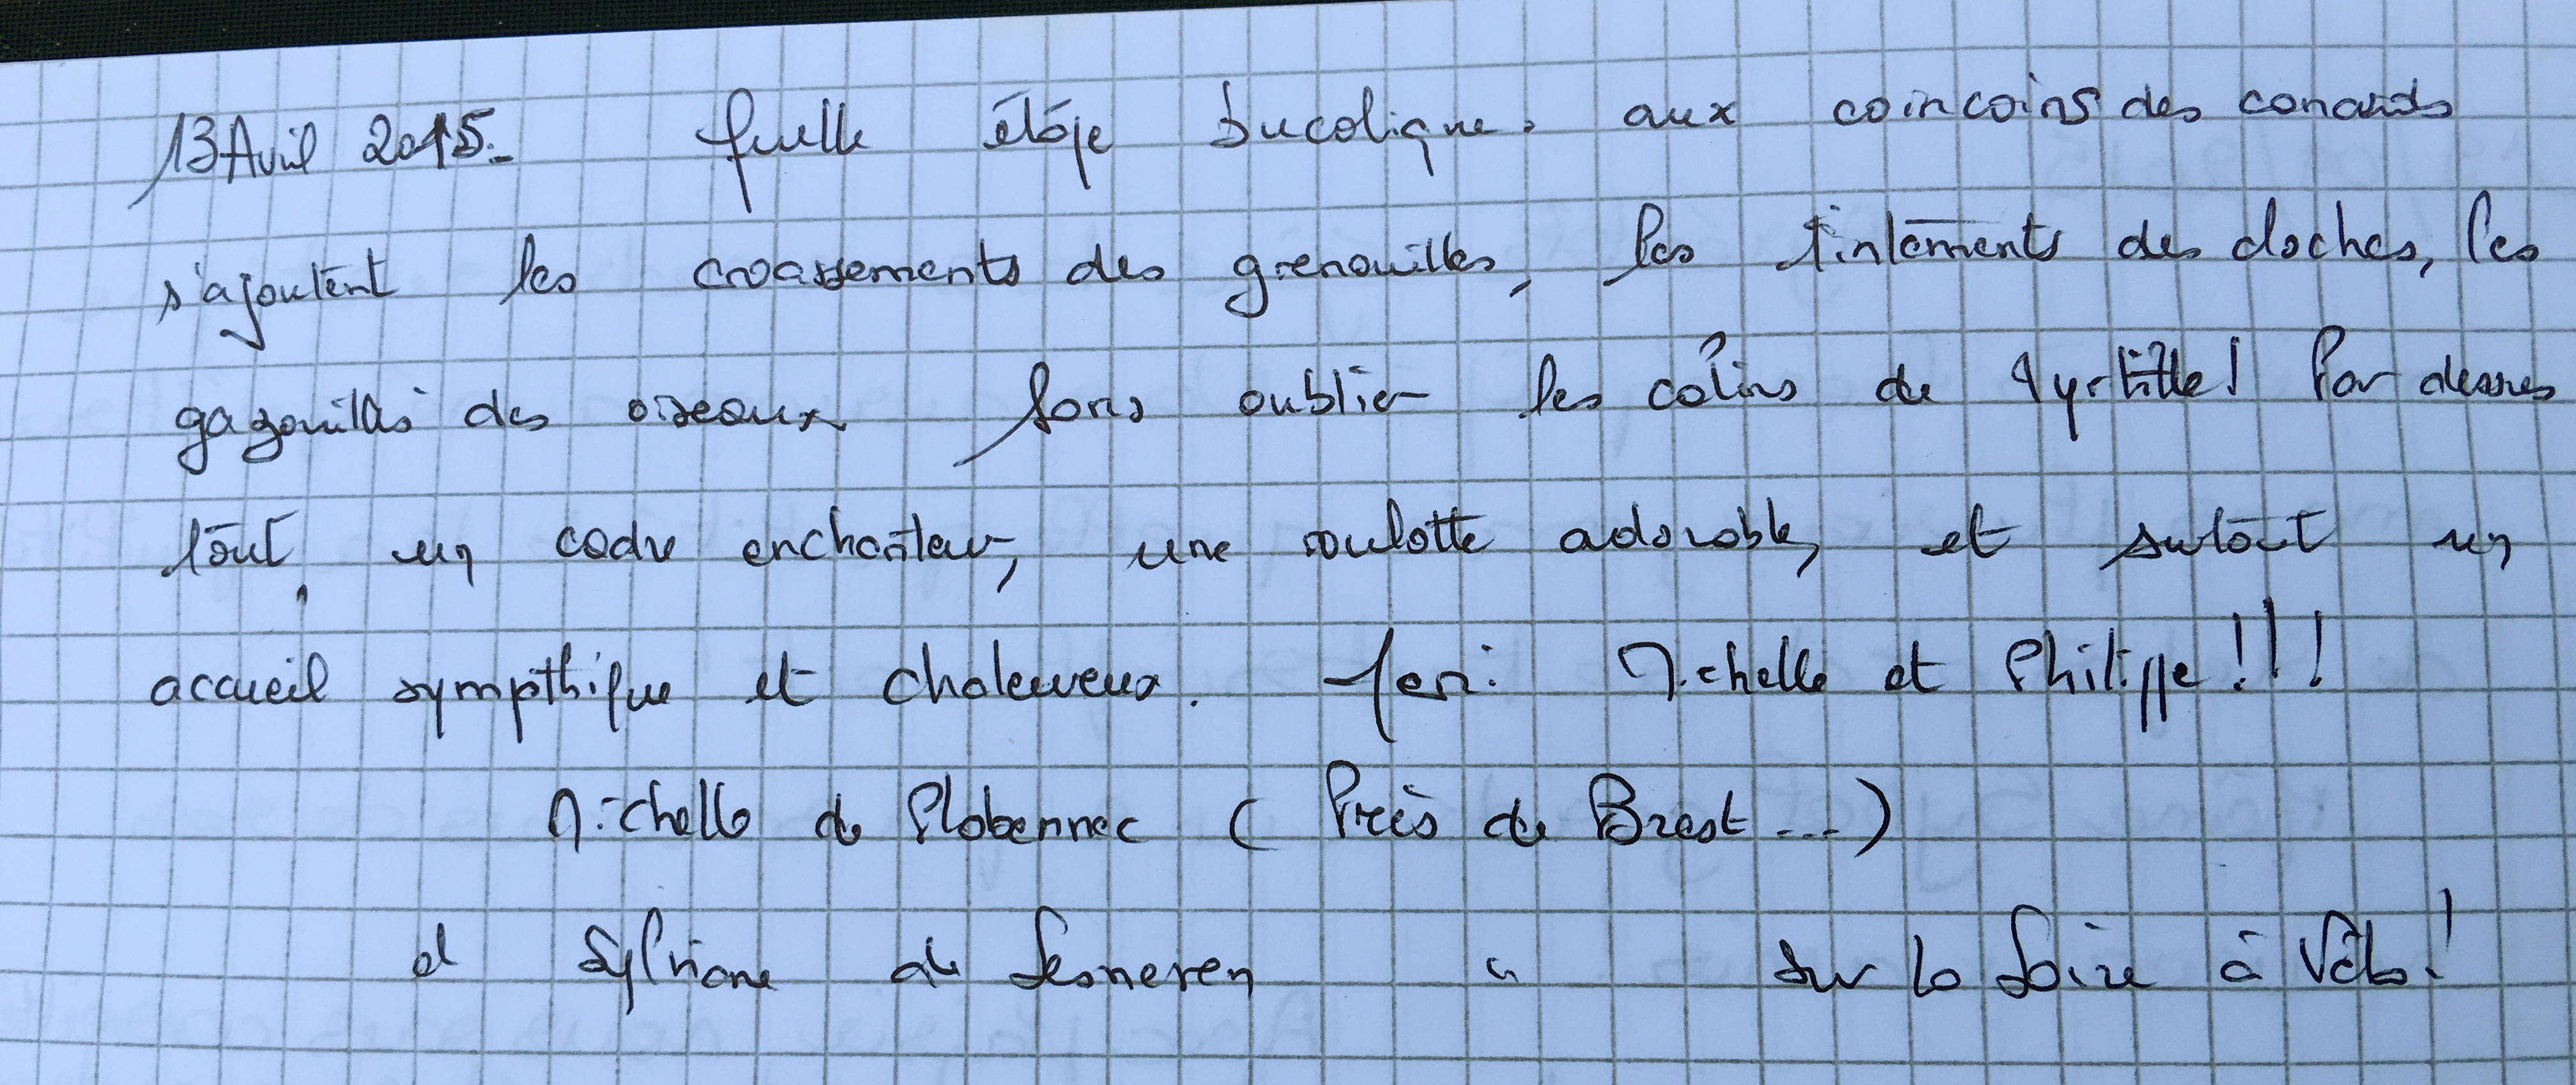 13 Avril 2015. Quelle étape bucolique, aux coincoins des canards
s'ajoutent les croassements des grenouilles, les tintements des cloches, les
gazouillis des oiseaux sans oublier les câlins de Myrtille! Par dessus
tout, un cadre enchanteur, une roulotte adorable, et surtout un
accueil sympthique et chaleureux. Merci Michelle et Philippe!!!
Michelle de Plabennec (Près de Brest...)
et Sylviane de Lesneven " sur la Loire à Vélo!